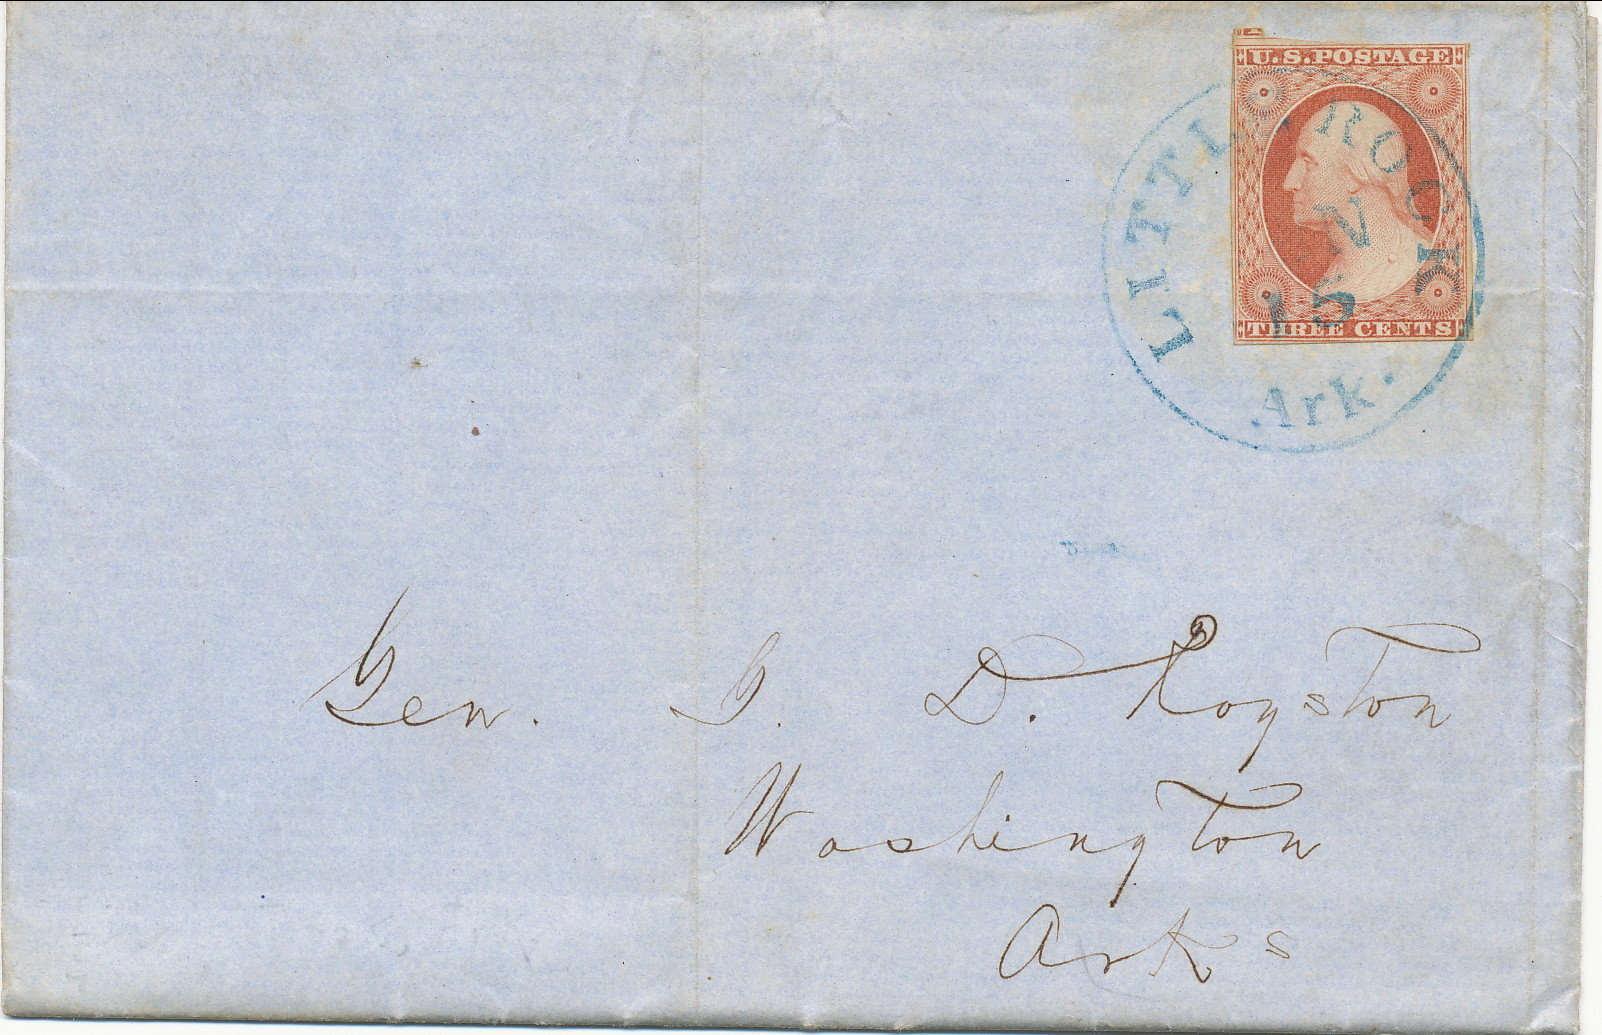 U.S. POSTAGE
LITTLE ROCK
15
Ark.
THREE CENTS
Gen. G. D. Royston
Washington
Arks